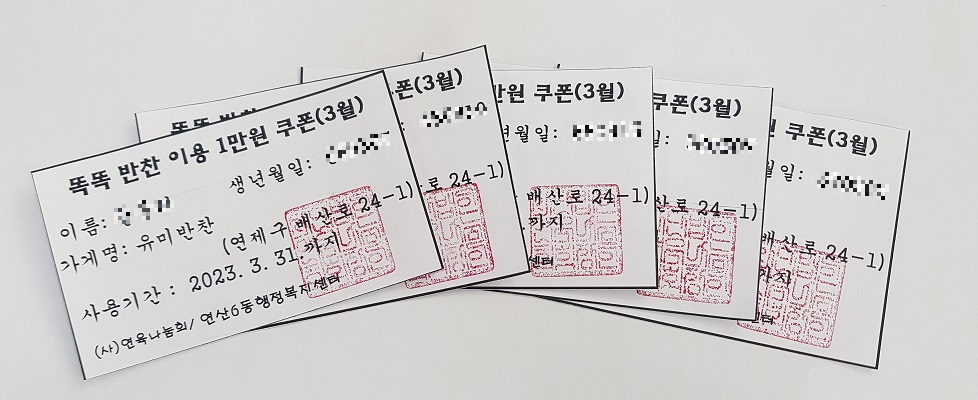 똑똑 반찬 이용 1만원 쿠폰(3월)
이름: 생년월일:
가게명: 유미반찬 (연제구 배산로 24-1)
사용기간 : 2023. 3. 31.까지
(사)연육나눔회/ 연산6동행정복지센터
똑똑 반찬 쿠폰(3월)
:
로 24-1)
만원 쿠폰(3월)
년월일:
배산로 24-1)
까지
센터
쿠폰(3월)
일:
산로 24-1)
쿠폰(3월)
월일:
배산로 24-1)
까지
센터